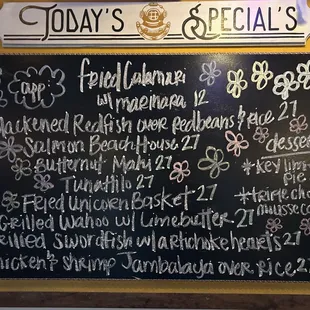 TODAY'S SPECIAL'S
app:
fried Calamari
w/ marinara 12
lackened Redfish over redbeans & rice 27
Salmon Beach House 27
Butternut Mahi 27
Tunatilo 27
Fried Unicorn Basket 27
Grilled Wahoo w/ Limebutter 27
rilled Swordfish w/ artichoke hearts 27
hicken & shrimp Jambalaya over Rice 27
desse
*key lim
pie
*triple cho
musse ca